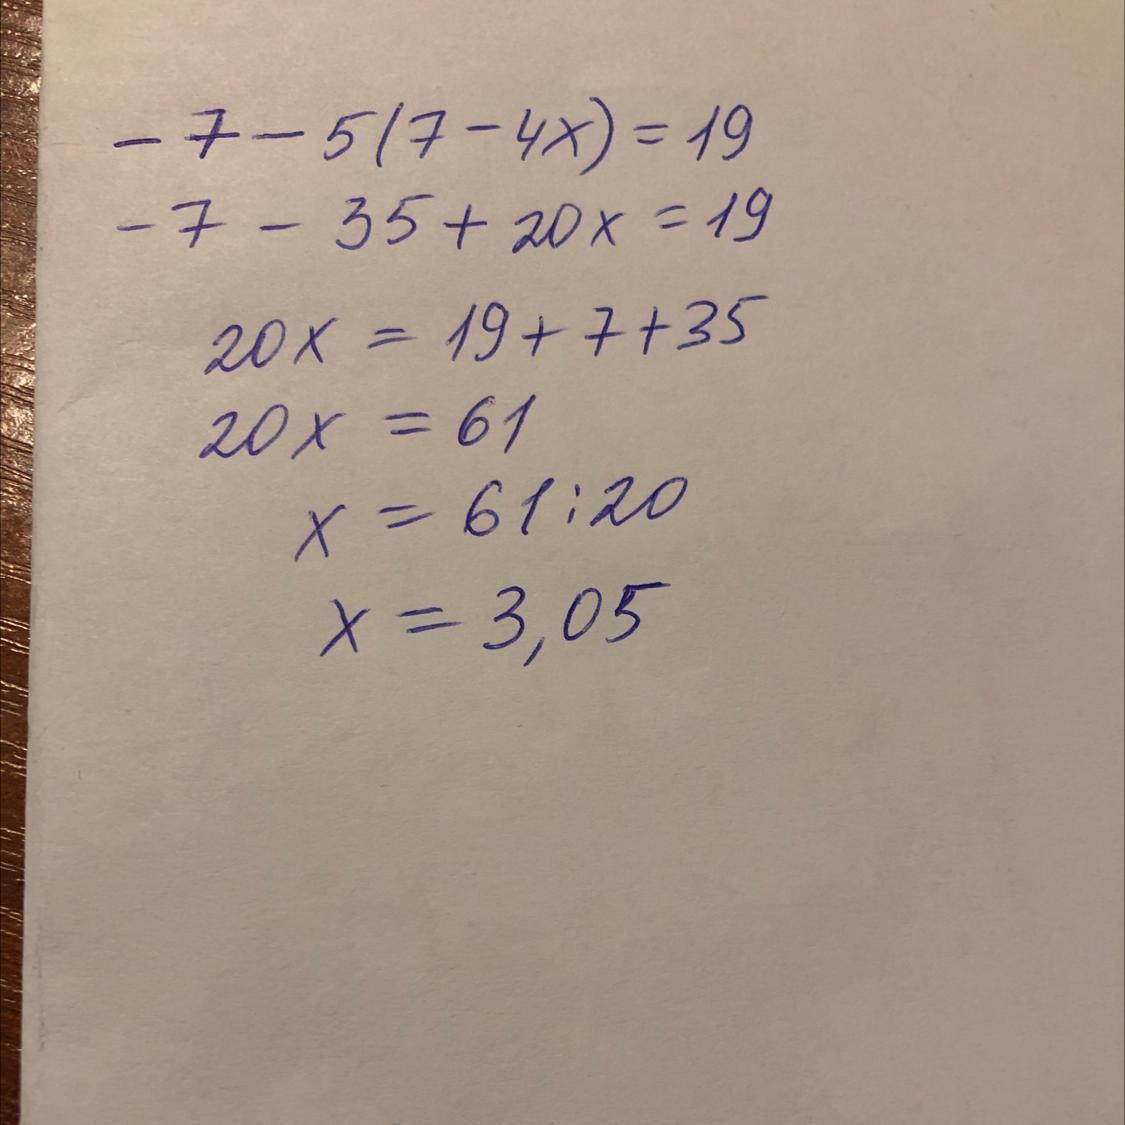 -7-5(7-4x)=19
-7-35+20x=19
20x=19+7+35
20x=61
x=61:20
x=3,05